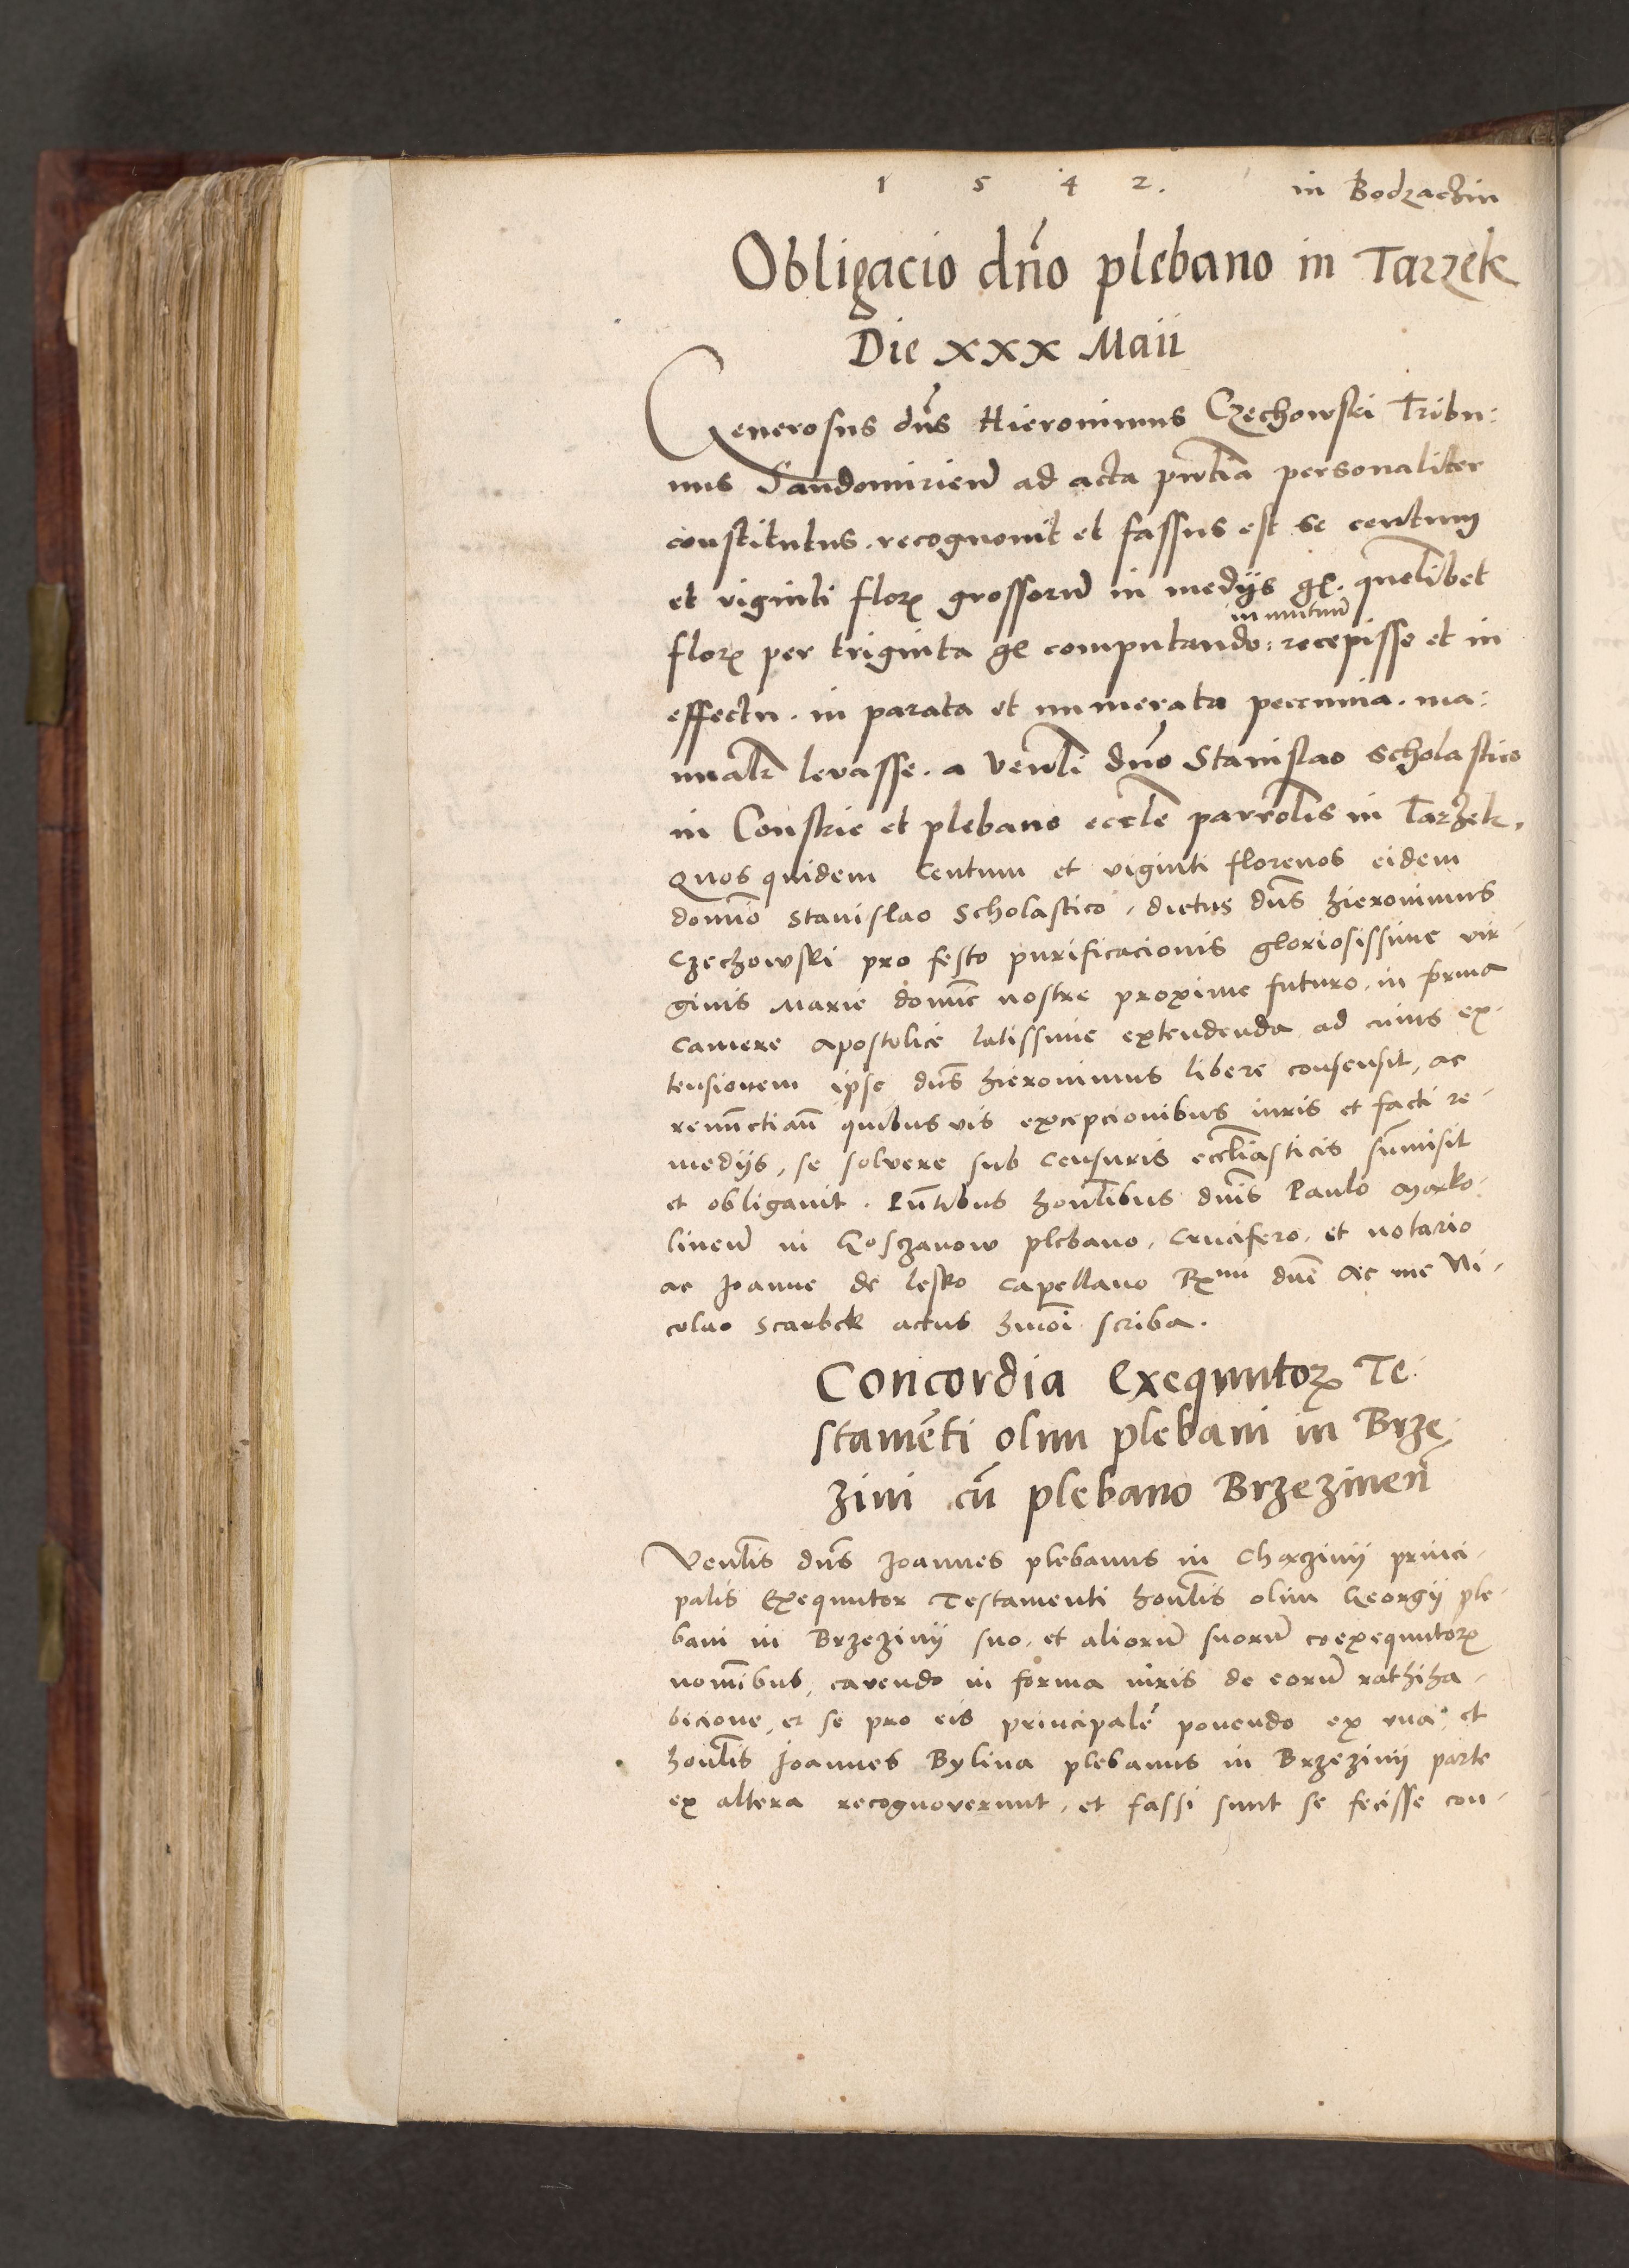 1 5 4 2. in Bodzachin
Obligacio dño plebano in Tarzek
Die xxx Maii
Generosus dñs Hieronimus Czechowski Tribu:
nus Sandomirieñ ad acta pñtia personaliter
constitutus. recognouit et fassus est se centum
et viginti floꝝ grossorũ in medijs gꝭ. quelibet
in mutuũ
floꝝ per triginta gꝭ computando: recepisse et in
effectu. in parata et numerata pecunia. ma:
nualꝛ levasse. a Venlĩ dño Stanislao Scholastico
in Conskie et plebano eccle parrolis in Tarzek.
Quos quidem Centum et viginti florenos eidem
domĩo Stanislao Scholastico, dictus dñs Hieronimus
Czechowski pro festo purificacionis gloriosissime vir-
ginis Marie domĩe nostre proxime futuro, in forma
Camere apostolice latissime extendenda ad cuius ex-
tensionem ipse dñs Hieronimus libere consensit, ac
renũctiañ quibus vis excepcionibus iuris et facti re-
medijs, se solvere sub Censuris eccliasticis sũmisit
et obligavit. Pñtibus honlibus dnis Paulo Marko-
lineñ in Gosczanow plebano, Crucifero, et notario
ac Joanne de lesko Capellano Rmi dni Ac me Ni-
colao Scarbek actus hmõi scriba.
Concordia Exequutoꝝ Te:
stamẽti olim plebani in Brze
zini cũ plebano Brzezineñ
Venlis dñs Joannes plebanus in Charzinij princi-
palis Exequutor Testamenti honlis olim Georgij ple-
bani in Brzezinij suo, et aliorũ suorũ coexequutoꝝ
nomĩbus, cavendo in forma iuris de eorũ rathiha-
bicione, et se pro eis principalẽ ponendo ex una, et
honlis Joannes Bylina plebanus in Brzezinij parte
ex altera recognoverunt, et fassi sunt se fecisse con-